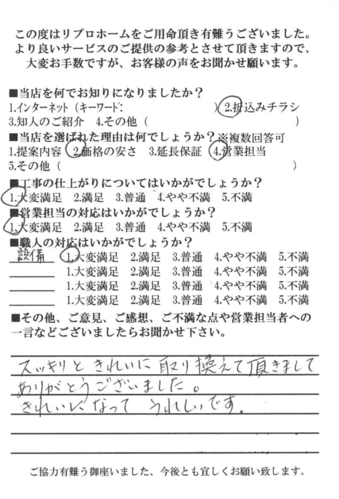 この度はリブロホームをご用命頂き有難うございました。
より良いサービスのご提供の参考とさせて頂きますので、
大変お手数ですが、お客様の声をお聞かせ願います。
■当店を何でお知りになりましたか？
1.インターネット（キーワード： ） 2.折込みチラシ
3.知人のご紹介 4.その他（ ）
■当店を選ばれた理由は何でしょうか？※複数回答可
1.提案内容 2.価格の安さ 3.延長保証 4.営業担当
5.その他（ ）
■工事の仕上がりについてはいかがでしょうか？
1.大変満足 2.満足 3.普通 4.やや不満 5.不満
■営業担当の対応はいかがでしょうか？
1.大変満足 2.満足 3.普通 4.やや不満 5.不満
■職人の対応はいかがでしょうか？
設備 1.大変満足 2.満足 3.普通 4.やや不満 5.不満
1.大変満足 2.満足 3.普通 4.やや不満 5.不満
1.大変満足 2.満足 3.普通 4.やや不満 5.不満
1.大変満足 2.満足 3.普通 4.やや不満 5.不満
■その他、ご意見、ご感想、ご不満な点や営業担当者への
一言などございましたらお聞かせ下さい。
スッキリときれいに取り換えて頂きまして
ありがとうございました。
きれいになってうれしいです。
ご協力有難う御座いました、今後とも宜しくお願い致します。